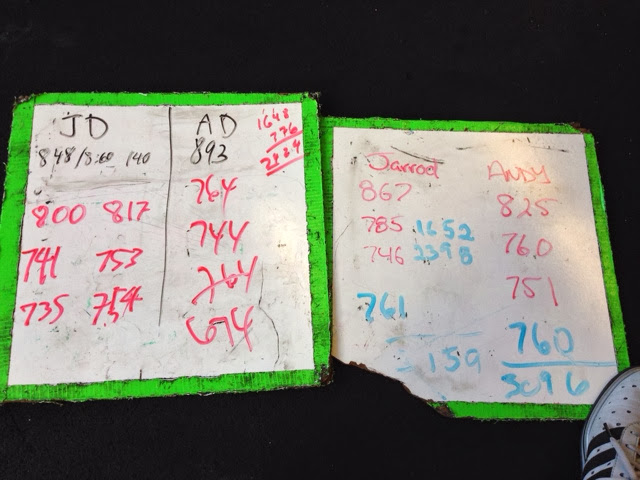 JD
848/8:00 140
800 817
741 753
735
AD
893
764
744
764
674
1648
776
2424
Jarrod
867
785 1652
746 2398
761
-159
ANDY
825
760
751
760
3096